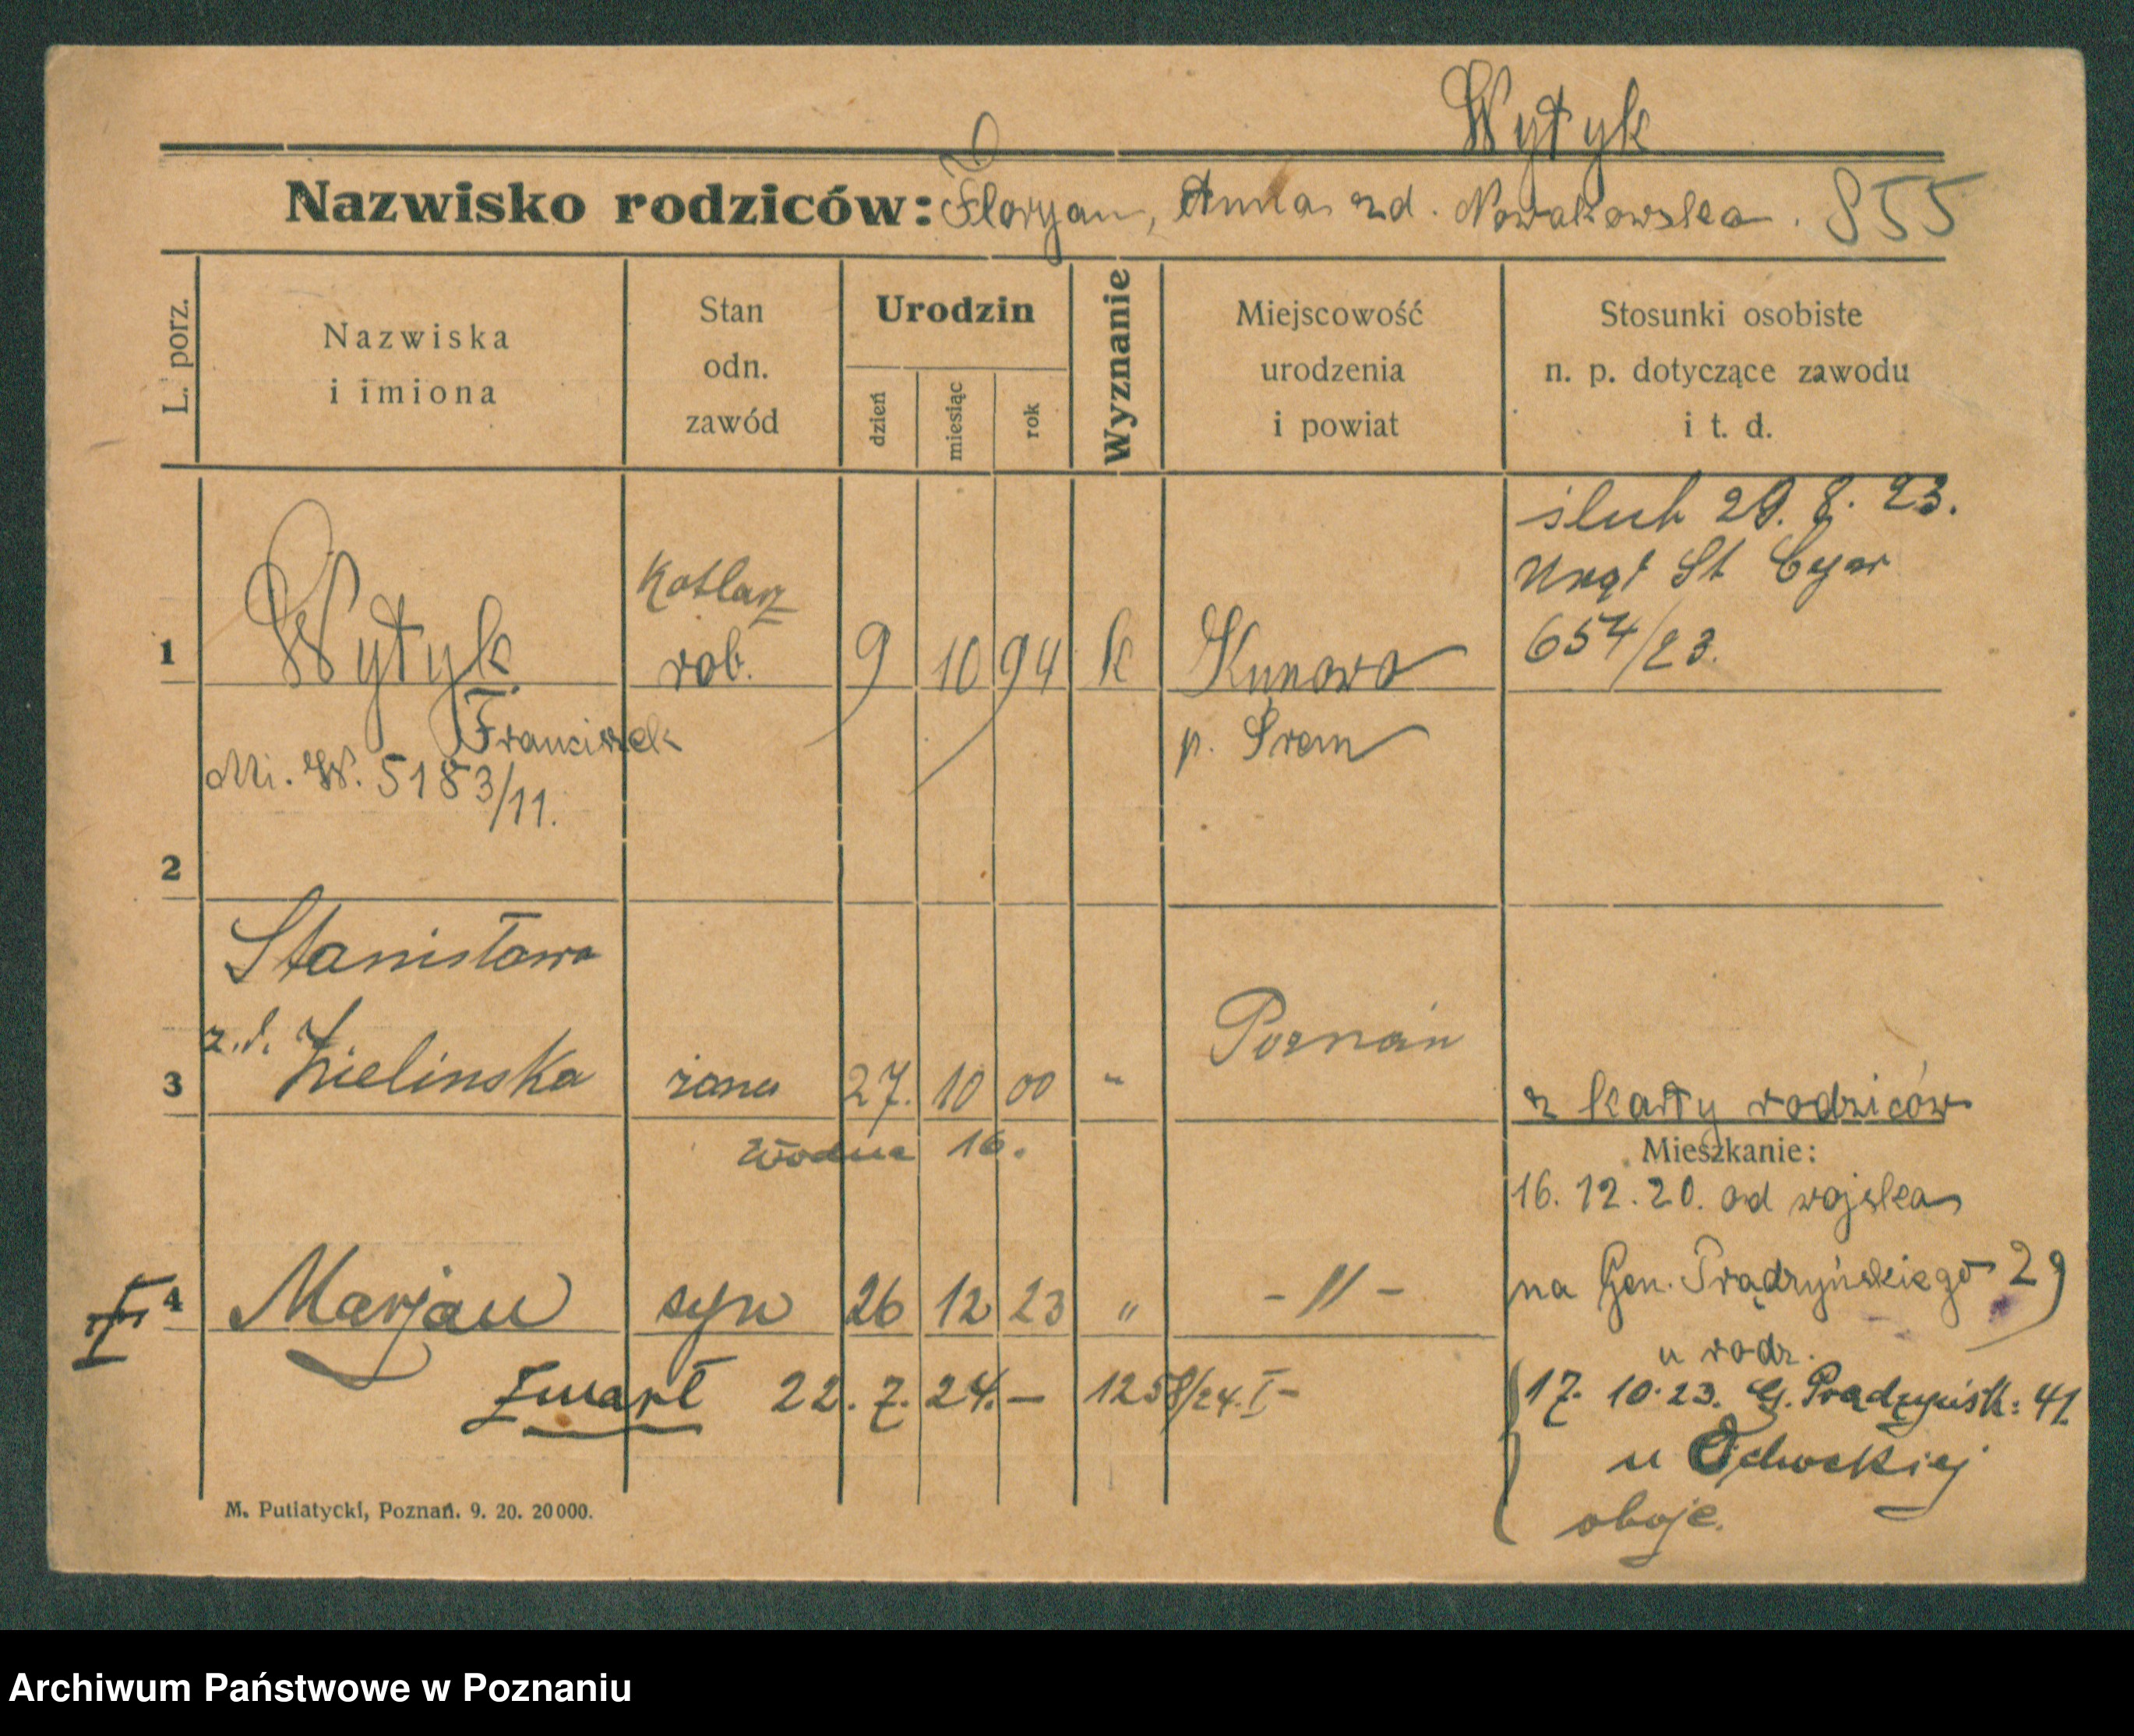 Wytyk
Nazwisko rodziców: Floryan, Anna zd. Nowakowska. 855
L. porz.
Nazwiska
i imiona
Stan
odn.
zawód
Urodzin
dzień
miesiąc
rok
Wyznanie
Miejscowość
urodzenia
i powiat
Stosunki osobiste
n. p. dotyczące zawodu
i t. d.
ślub 29. 8. 23.
Urząd St Cyw
654/23.
Kotlarz
1 Wytyk rob. 9 10 94 k Kunowo
Franciszek p. Śrem
Mi. W. 5183/11.
2
Stanisława
z.d.
3 Zielinska żona 27. 10 00 " Poznań
z karty rodziców
Wodna 16.
Mieszkanie:
16. 12. 20. od wojska
na Gen. Prądzyńskiego 29
u rodz.
4 Marjan syn 26 12 23 " -"-
Zmarł 22. 7. 24. — 1258/24. I -
17. 10. 23. G. Prądzyńsk: 41
u
oboje.
M. Putiatycki, Poznań. 9. 20. 20000.
Archiwum Państwowe w Poznaniu